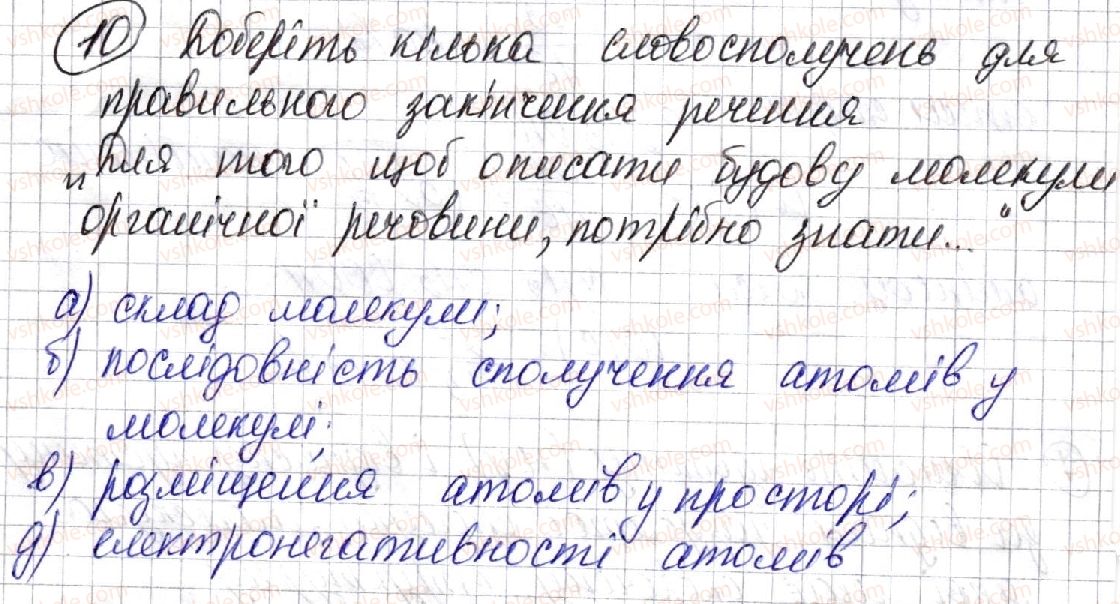 10 Доберіть кілька словосполучень для
правильного закінчення речення
„Для того щоб описати будову молекули
органічної речовини, потрібно знати..."
а) склад молекули;
б) послідовність сполучення атомів у
молекулі;
в) розміщення атомів у просторі;
д) електронегативності атомів